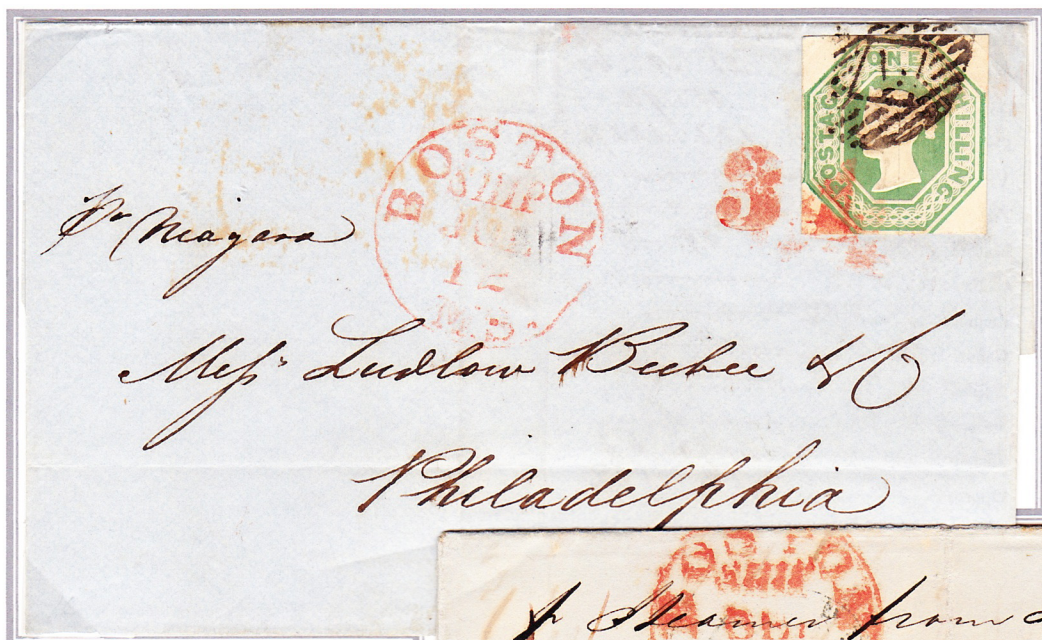 ONE
POSTAGE SHILLING
BOSTON
SHIP
12
MS.
pr Niagara
Messrs Ludlow Beebee & Co
Philadelphia
BOSTON
SHIP
p Steamer from